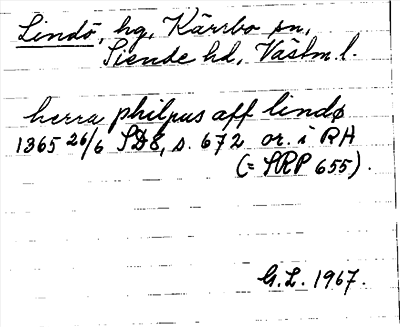 Lindö, hg, Kärrbo sn,
Siende hd, Västm. l.
herra philpus aff lindø
1365 26/6 SD 8, s. 672 or. i RH
(= SRP 655).
G.L. 1967.